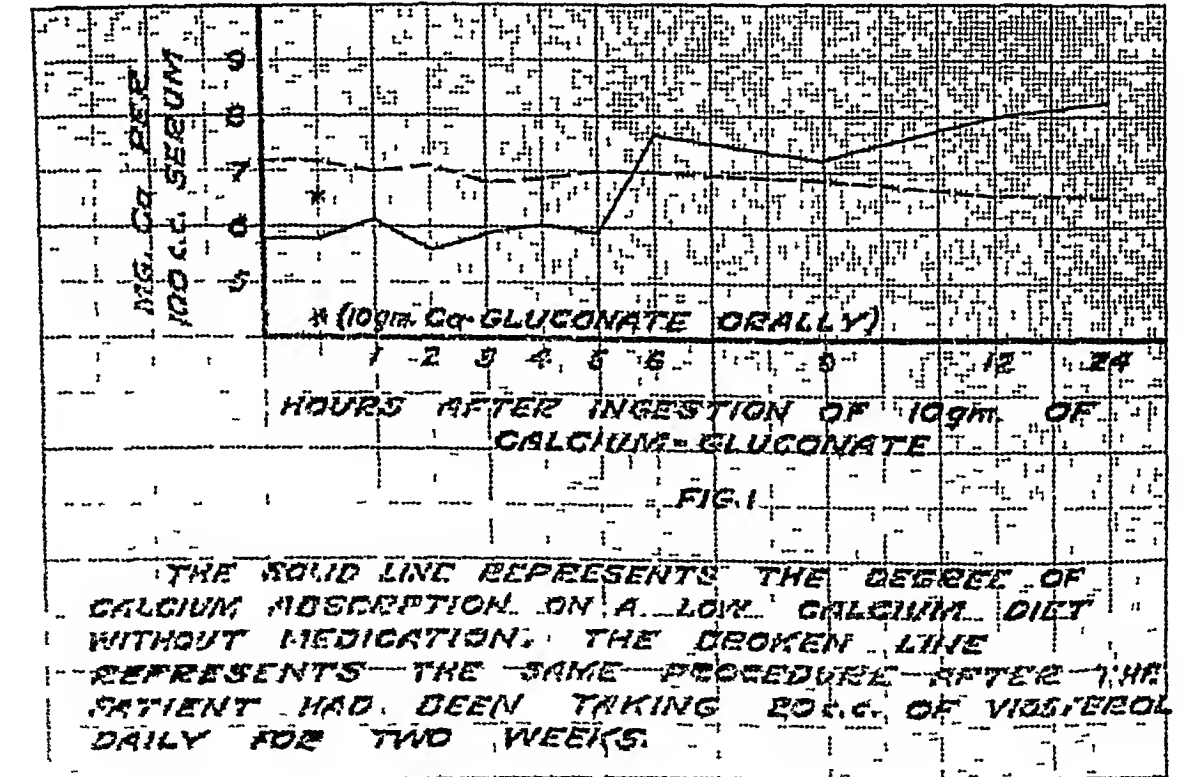 MG. Ca PER
100 c.c. SERUM
9
8
7
6
5
* (10gm. Ca-GLUCONATE ORALLY)
1 2 3 4 5 6 9 12 24
HOURS AFTER INGESTION OF 10gm. OF
CALCIUM-GLUCONATE
FIG. 1
THE SOLID LINE REPRESENTS THE DEGREE OF
CALCIUM ABSORPTION ON A LOW CALCIUM DIET
WITHOUT MEDICATION. THE BROKEN LINE
REPRESENTS THE SAME PROCEDURE AFTER THE
PATIENT HAD BEEN TAKING 20 c.c. OF VIOSTEROL
DAILY FOR TWO WEEKS.